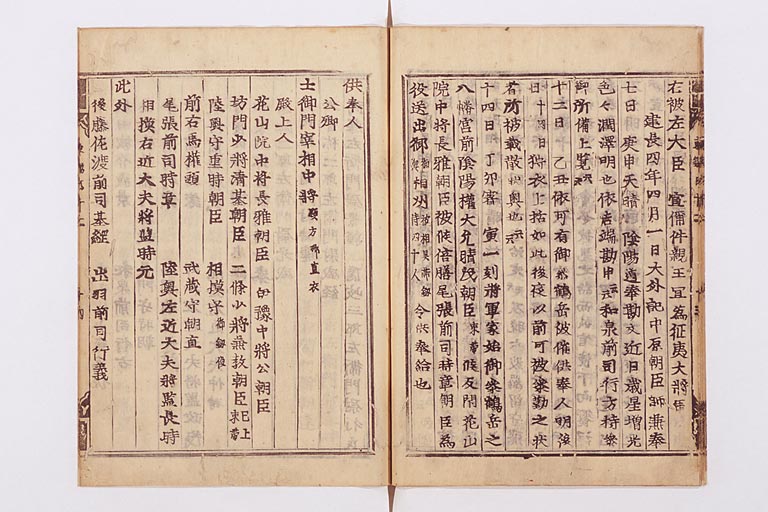 右被左大臣 宣偁件親王宜為征夷大将軍
建長四年四月一日大外記中原朝臣師兼奉
七日 庚申天晴 陰陽道奉勘文近日歳星増光
色々潤澤明也依吉端勘申云和泉前司行方持参
御所備上覧云
十三日 乙丑依可有御参鶴岳被催供奉人明後
日十四日 狩衣上括如此後夜以前可被参勤之状
若所被載散状與也云云
十四日 丁卯霽 寅一刻将軍家始御参鶴岳之
八幡宮前陰陽權大允晴茂朝臣束帯候反閇花山
院中将長雅朝臣被従倍膳尾張前司時章朝臣為
役送出御 令供奉給也
供奉人
公卿
土御門宰相中将顕方布直衣
殿上人
花山院中将長雅朝臣 伊豫中将公朝臣
坊門少将清基朝臣 二條少将兼教朝臣已上束帯
陸奥守重時朝臣 相模守
前右馬權頭 武蔵守朝直
尾張前司時章 陸奥左近大夫将監長時
相摸右近大夫将監時元
此外
後藤佐渡前司基經 出羽前司行義